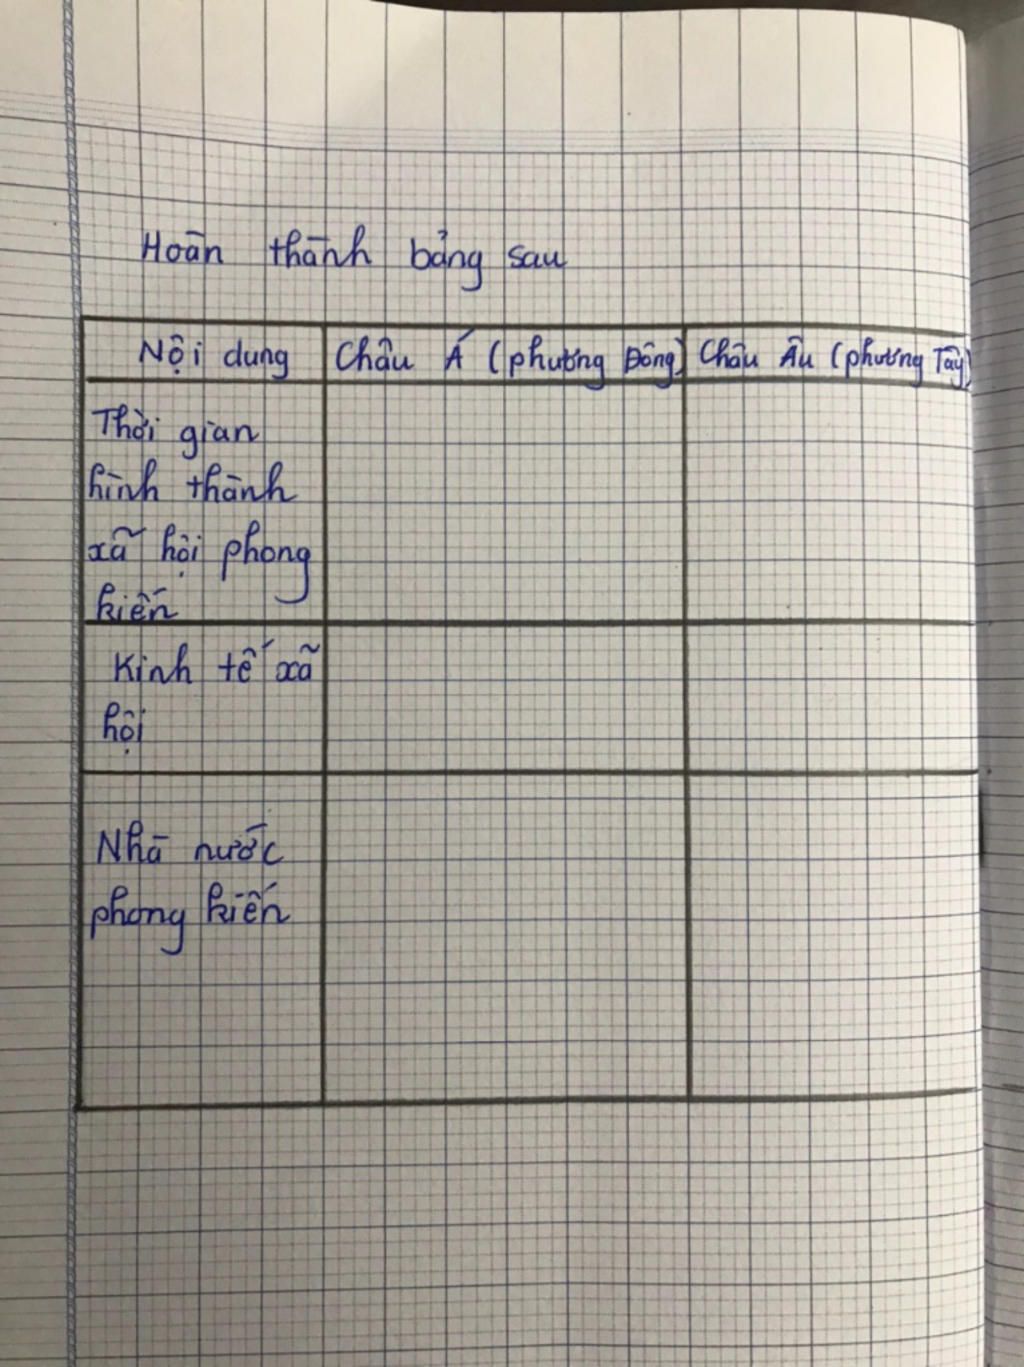 Hoàn thành bảng sau
Nội dung
Châu Á (phương Đông)
Châu Âu (phương Tây)
Thời gian
hình thành
xã hội phong
kiến
Kinh tế xã
hội
Nhà nước
phong kiến